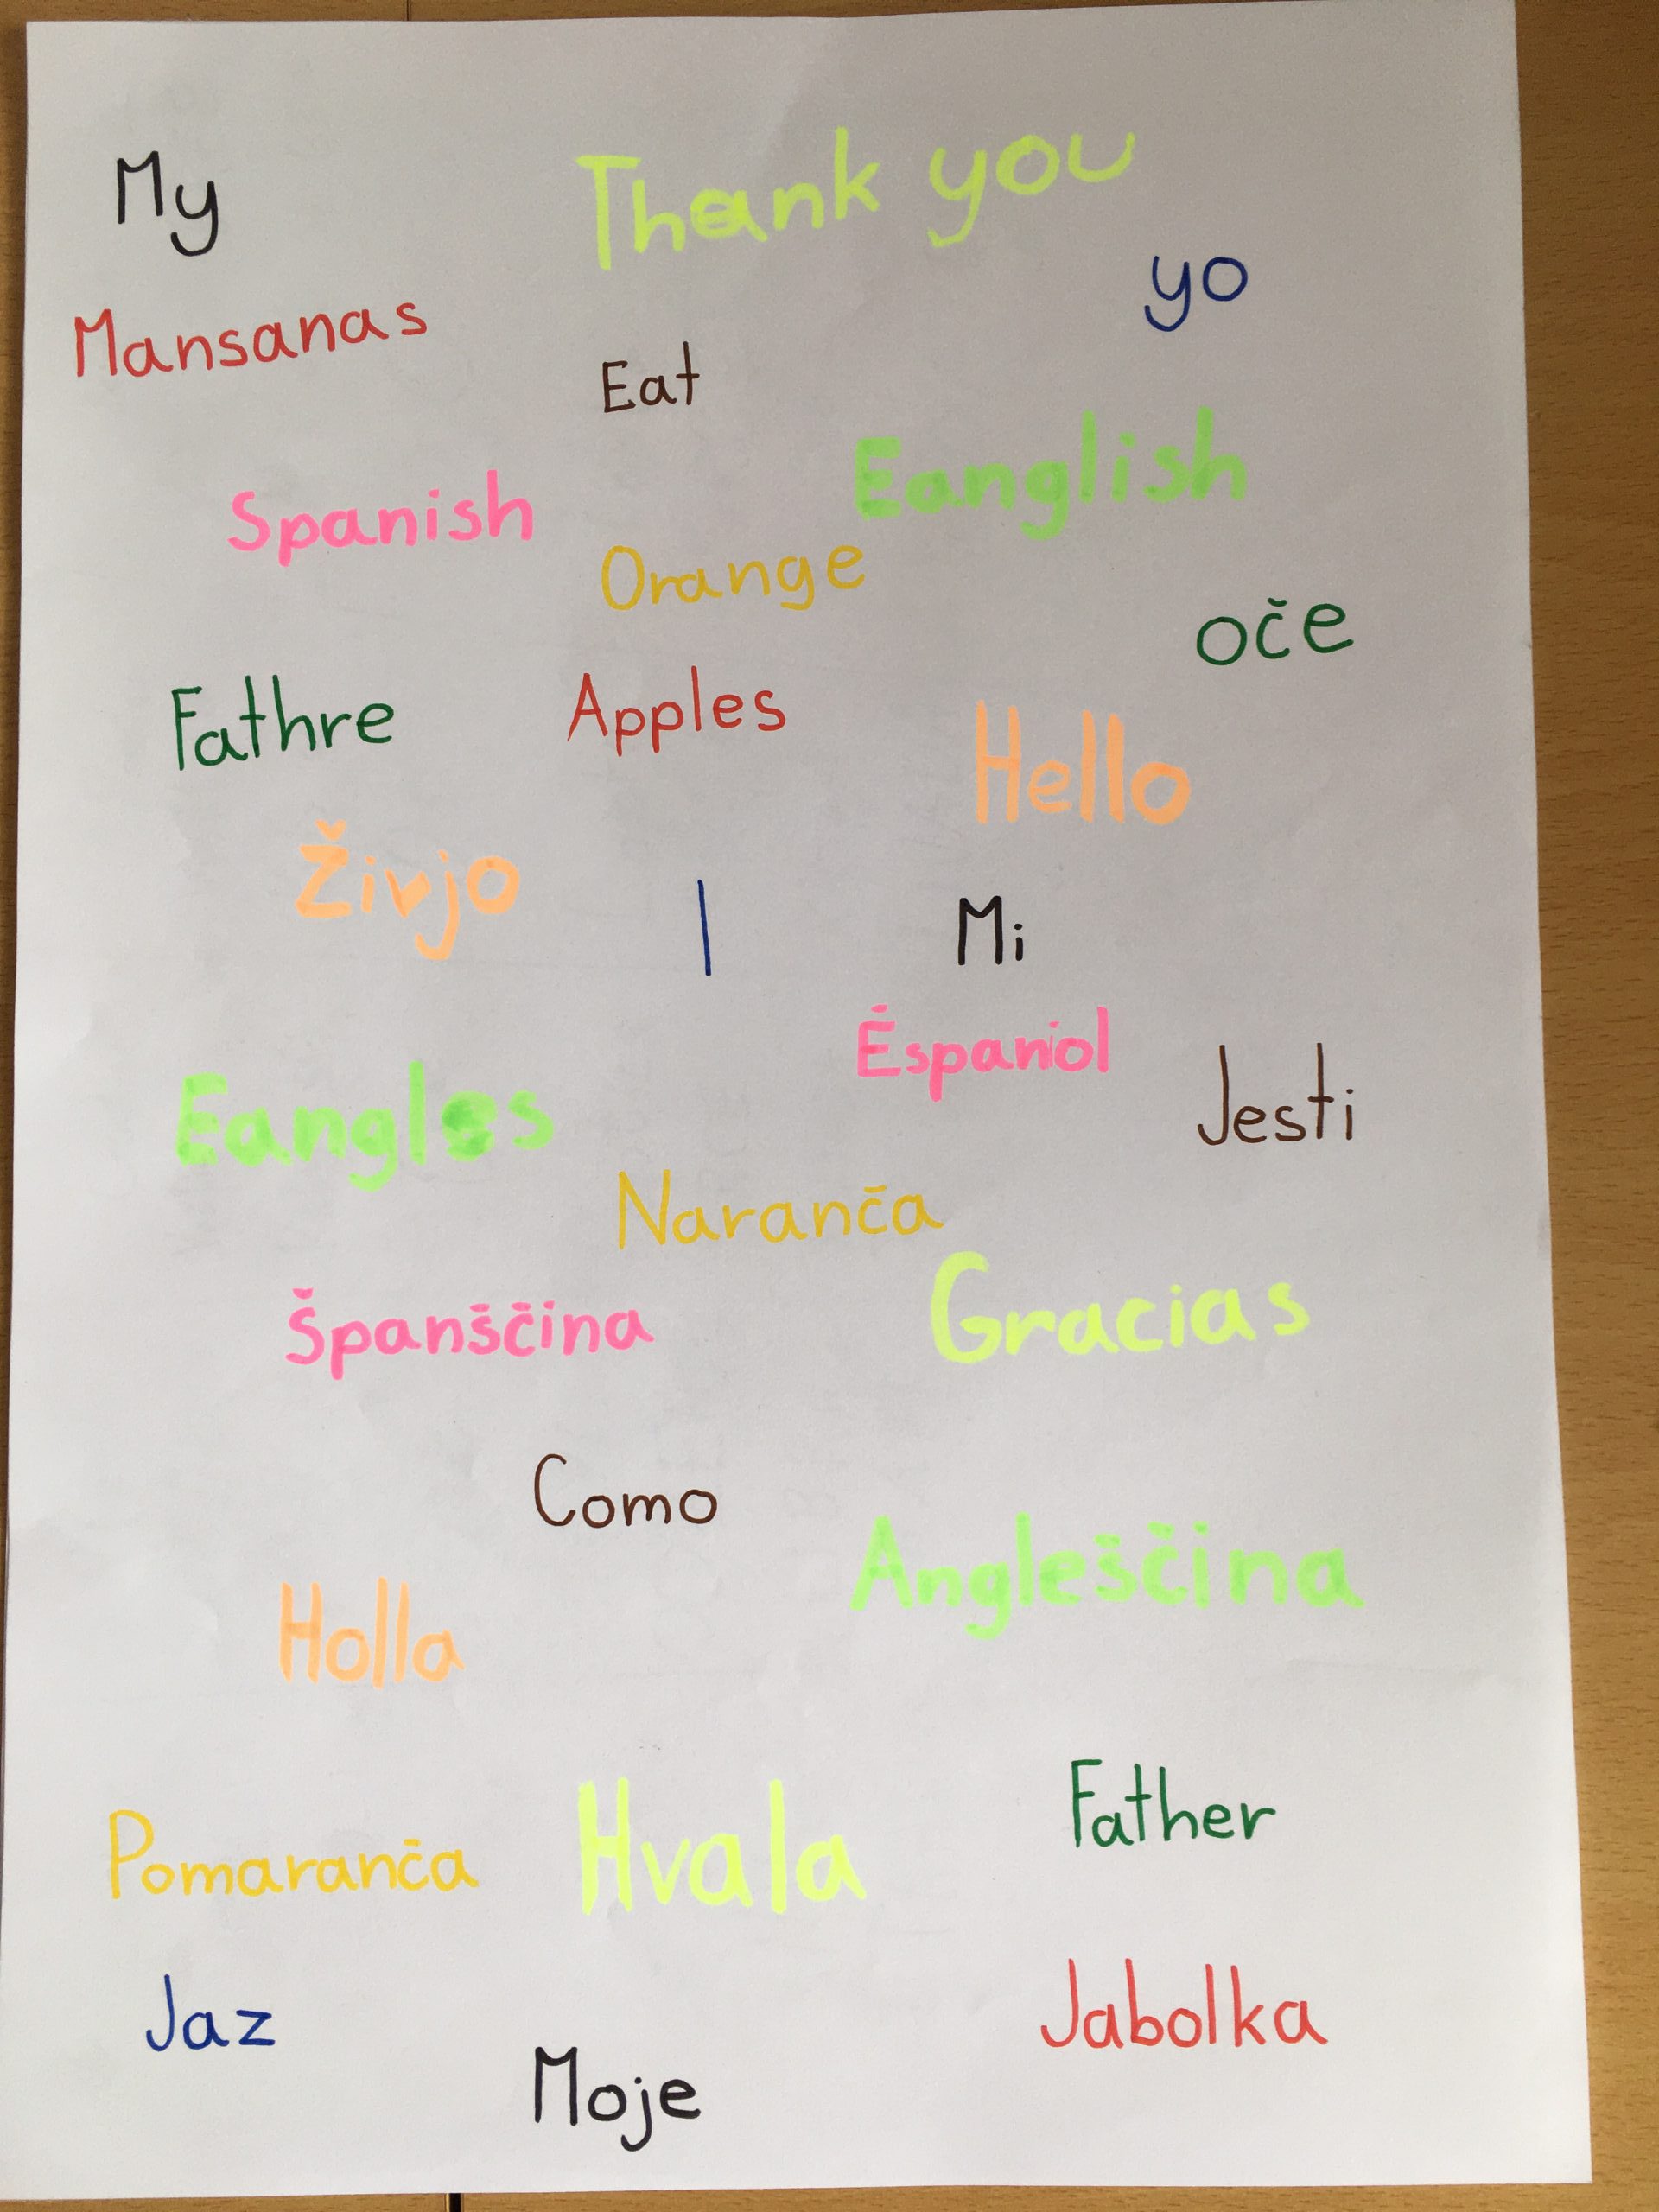 My
Thank you
yo
Mansanas
Eat
Eanglish
Spanish
Orange
oče
Fathre
Apples
Hello
Živjo
I
Mi
Éspaniol
Eangles
Jesti
Naranča
Gracias
Španščina
Como
Angleščina
Holla
Father
Pomaranča
Hvala
Jaz
Jabolka
Moje